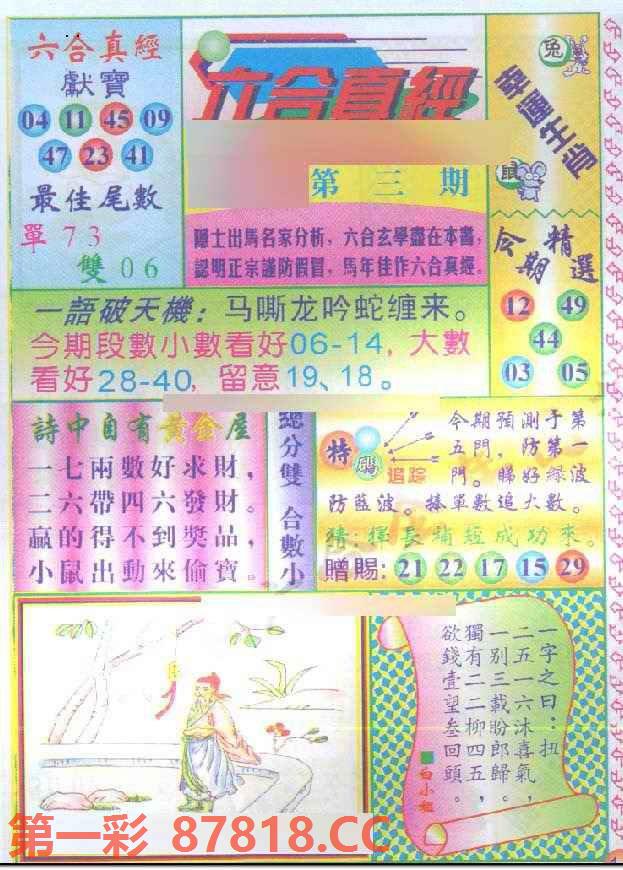 六合真經
獻寶
04 11 45 09
47 23 41
最佳尾數
單 7 3
雙 0 6
六合真經
第三期
隱士出馬名家分析，六合玄學盡在本書，
認明正宗謹防假冒，馬年佳作六合真經。
兔
幸運生肖
鼠
今期精選
12 49
44
03 05
一語破天機：马嘶龙吟蛇缠来。
今期段數小數看好06-14，大數
看好28-40，留意19、18。
詩中自有黃金屋
一七兩數好求財，
二六帶四六發財。
贏的得不到獎品，
小鼠出動來偷寶。
總分雙 合數小
特碼
追踪
今期預測于第
五門，防第一
門。睇好綠波
防藍波。捧單數追大數。
猜：揮長端短成功來。
贈賜：21 22 17 15 29
一字之曰：扭
二五一六沐喜氣，
一别三載盼郎歸。
獨有二二柳四五，
欲錢壹望叁回頭。
白小姐
第一彩 87818.CC